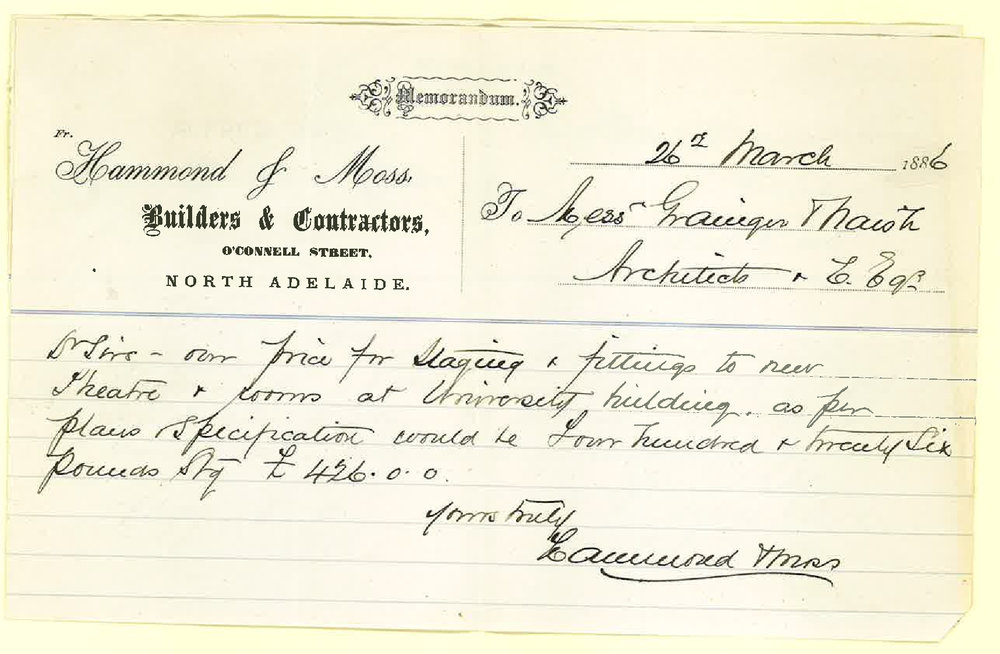 Memorandum.
Fr.
Hammond & Moss,
Builders & Contractors,
O'CONNELL STREET,
NORTH ADELAIDE.
26th March 1886
To Messrs Grainger & Naish
Architects & C. Eqrs
Dr Sirs – our price for staging & fittings to new
Theatre & rooms at University building. as per
plans & specification would be Four hundred & twenty Six
pounds Stg £ 426.0.0.
Yours truly
Hammond & Moss